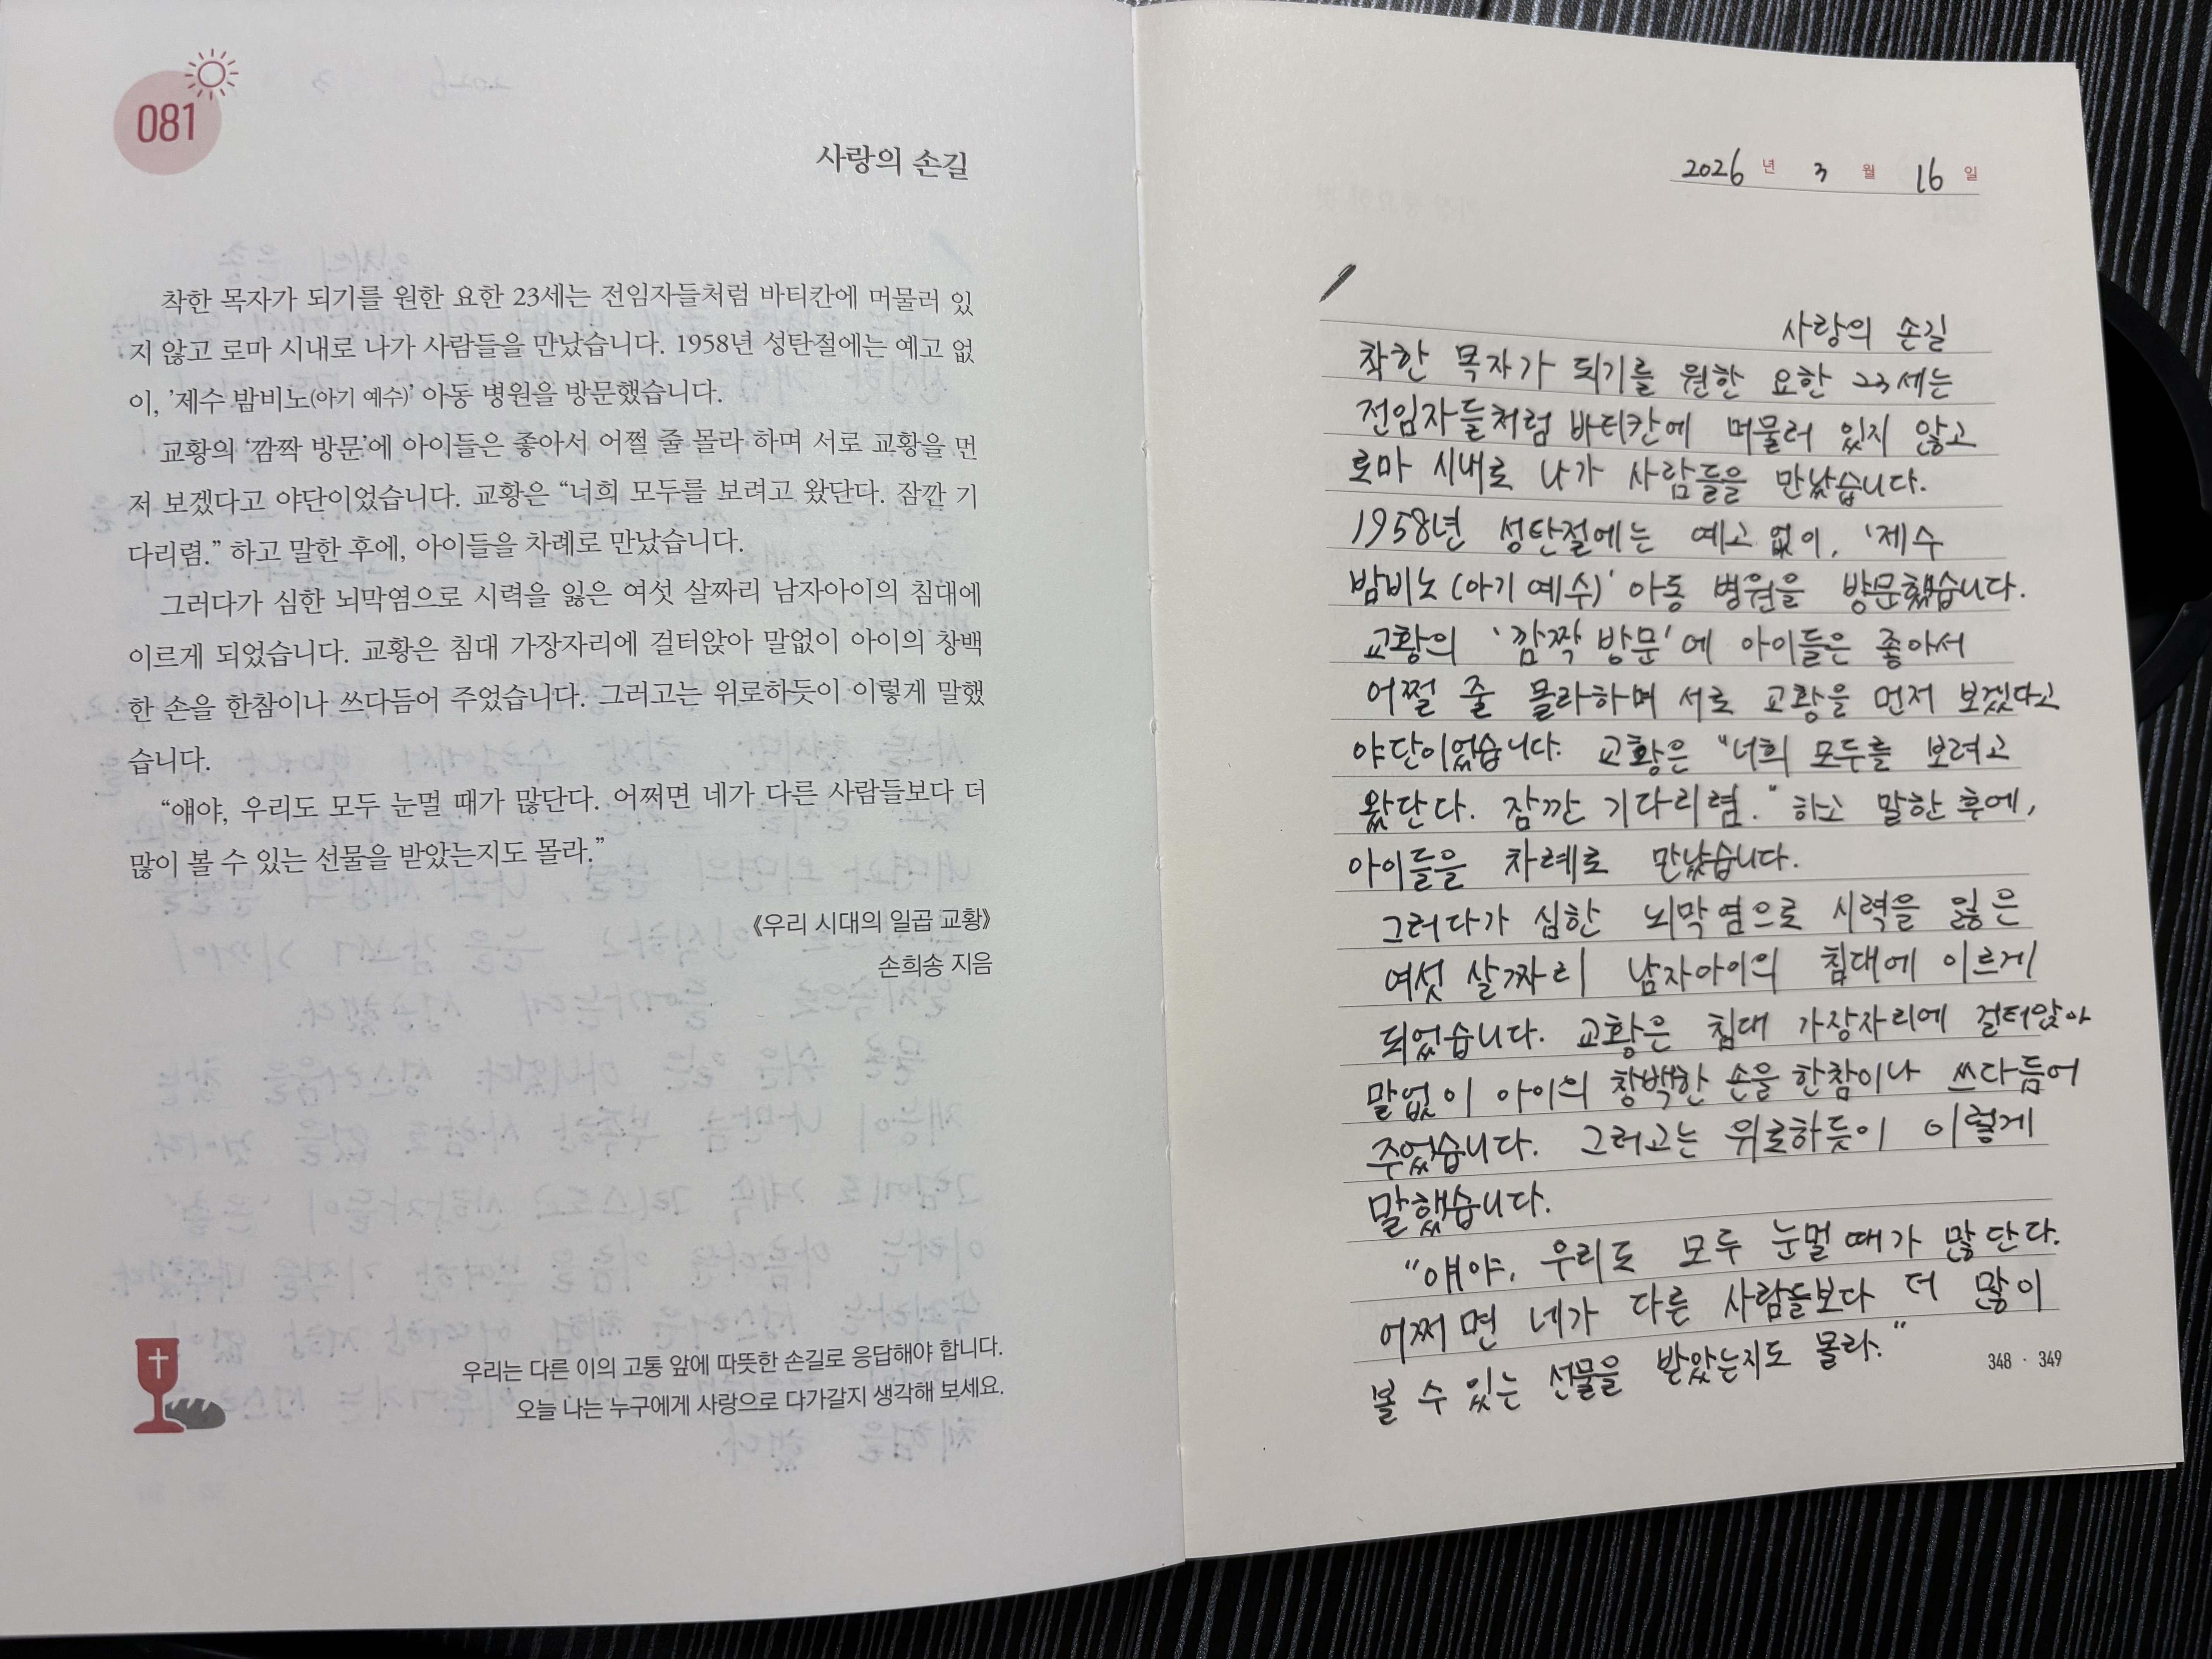 081
사랑의 손길
착한 목자가 되기를 원한 요한 23세는 전임자들처럼 바티칸에 머물러 있
지 않고 로마 시내로 나가 사람들을 만났습니다. 1958년 성탄절에는 예고 없
이, ’제수 밤비노(아기 예수)’ 아동 병원을 방문했습니다.
교황의 ‘깜짝 방문’에 아이들은 좋아서 어쩔 줄 몰라 하며 서로 교황을 먼
저 보겠다고 야단이었습니다. 교황은 “너희 모두를 보려고 왔단다. 잠깐 기
다리렴.” 하고 말한 후에, 아이들을 차례로 만났습니다.
그러다가 심한 뇌막염으로 시력을 잃은 여섯 살짜리 남자아이의 침대에
이르게 되었습니다. 교황은 침대 가장자리에 걸터앉아 말없이 아이의 창백
한 손을 한참이나 쓰다듬어 주었습니다. 그러고는 위로하듯이 이렇게 말했
습니다.
“얘야, 우리도 모두 눈멀 때가 많단다. 어쩌면 네가 다른 사람들보다 더
많이 볼 수 있는 선물을 받았는지도 몰라.”
《우리 시대의 일곱 교황》
손희송 지음
우리는 다른 이의 고통 앞에 따뜻한 손길로 응답해야 합니다.
오늘 나는 누구에게 사랑으로 다가갈지 생각해 보세요.
2026 년 3 월 16 일
사랑의 손길
착한 목자가 되기를 원한 요한 23세는
전임자들처럼 바티칸에 머물러 있지 않고
로마 시내로 나가 사람들을 만났습니다.
1958년 성탄절에는 예고 없이, '제수
밤비노(아기 예수)' 아동 병원을 방문했습니다.
교황의 '깜짝 방문'에 아이들은 좋아서
어쩔 줄 몰라하며 서로 교황을 먼저 보겠다고
야단이었습니다. 교황은 "너희 모두를 보려고
왔단다. 잠깐 기다리렴." 하고 말한 후에,
아이들을 차례로 만났습니다.
그러다가 심한 뇌막염으로 시력을 잃은
여섯 살짜리 남자아이의 침대에 이르게
되었습니다. 교황은 침대 가장자리에 걸터앉아
말없이 아이의 창백한 손을 한참이나 쓰다듬어
주었습니다. 그러고는 위로하듯이 이렇게
말했습니다.
"얘야, 우리도 모두 눈멀 때가 많단다.
어쩌면 네가 다른 사람들보다 더 많이
볼 수 있는 선물을 받았는지도 몰라."
348 · 349